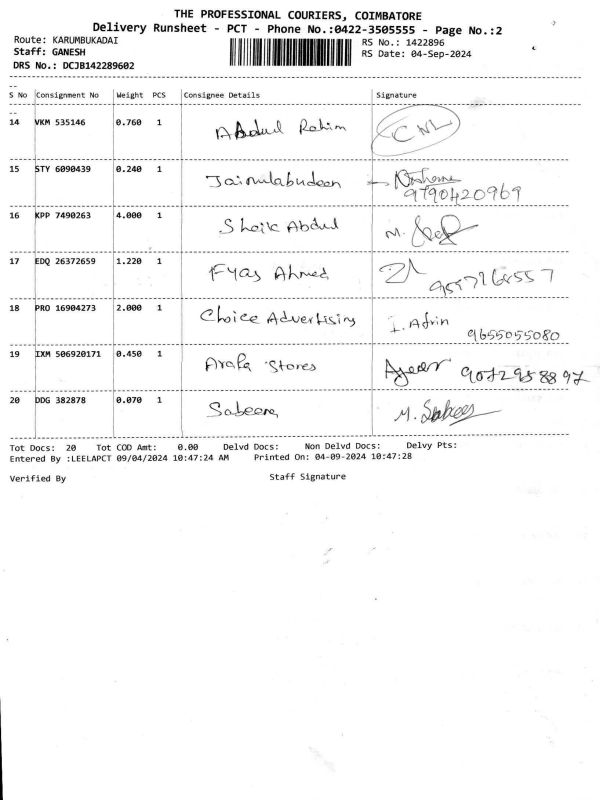 THE PROFESSIONAL COURIERS, COIMBATORE
Delivery Runsheet - PCT - Phone No.:0422-3505555 - Page No.:2
Route: KARUMBUKADAI RS No.: 1422896
Staff: GANESH RS Date: 04-Sep-2024
DRS No.: DCJB142289602
S No Consignment No Weight PCS Consignee Details Signature
14 VKM 535146 0.760 1 Abdul Rahim CNL
15 STY 6090439 0.240 1 Jainulabudeen
9790420969
16 KPP 7490263 4.000 1 Sheik Abdul M.
17 EDQ 26372659 1.220 1 Fyas Ahmed
18 PRO 16904273 2.000 1 Choice Advertising I. Afrin 9655055080
19 IXM 506920171 0.450 1 Arafa Stores
20 DDG 382878 0.070 1 Sabeena M.
Tot Docs: 20 Tot COD Amt: 0.00 Delvd Docs: Non Delvd Docs: Delvy Pts:
Entered By :LEELAPCT 09/04/2024 10:47:24 AM Printed On: 04-09-2024 10:47:28
Verified By Staff Signature